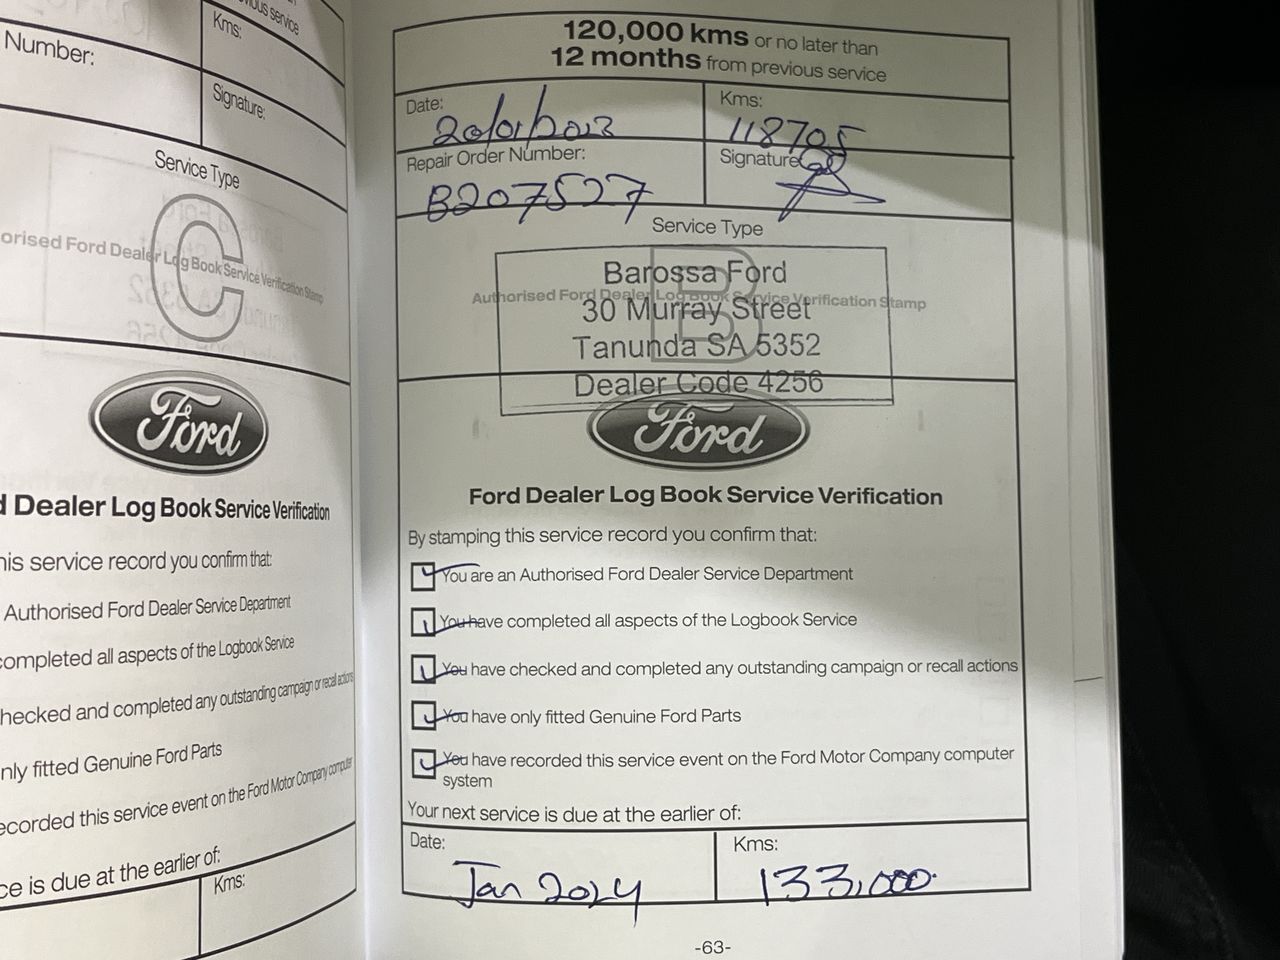 ous service
Kms:
Number:
Signature:
Service Type
C
orised Ford Dealer Log Book Service Verification Stamp
Ford
d Dealer Log Book Service Verification
his service record you confirm that:
Authorised Ford Dealer Service Department
completed all aspects of the Logbook Service
hecked and completed any outstanding campaign or recall actions
nly fitted Genuine Ford Parts
ecorded this service event on the Ford Motor Company computer
ce is due at the earlier of:
Kms:
120,000 kms or no later than
12 months from previous service
Date:
20/01/2023
Kms:
118705
Repair Order Number:
B207527
Signature
Service Type
B
Authorised Ford Dealer Log Book Service Verification Stamp
Barossa Ford
30 Murray Street
Tanunda SA 5352
Dealer Code 4256
Ford
Ford Dealer Log Book Service Verification
By stamping this service record you confirm that:
You are an Authorised Ford Dealer Service Department
You have completed all aspects of the Logbook Service
You have checked and completed any outstanding campaign or recall actions
You have only fitted Genuine Ford Parts
You have recorded this service event on the Ford Motor Company computer
system
Your next service is due at the earlier of:
Date:
Jan 2024
Kms:
133,000.
-63-